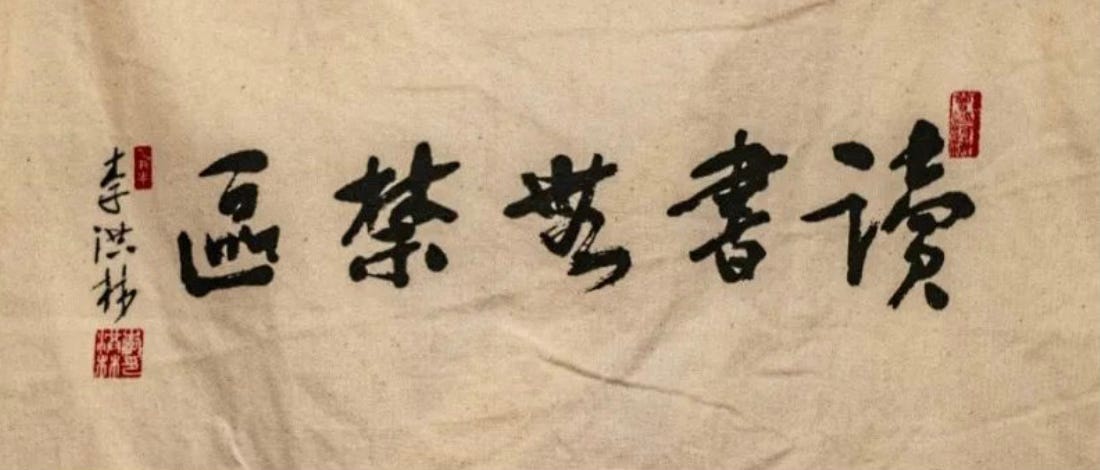 讀書無禁區
李洪林